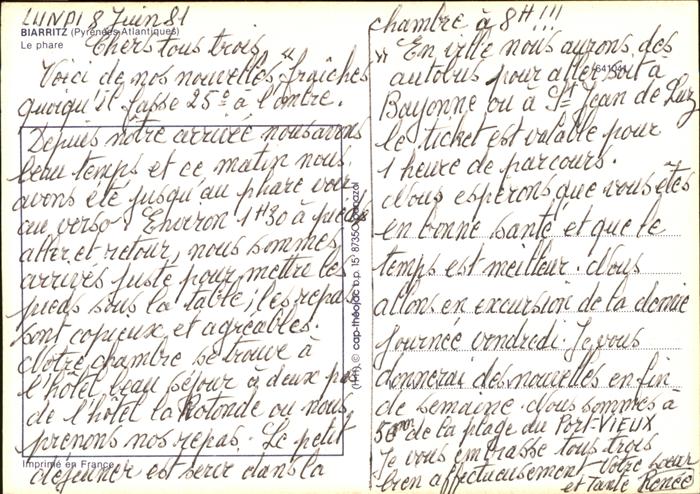 LUNDI 8 Juin 81
BIARRITZ (Pyrénées-Atlantiques)
Le phare
Chers tous trois,
Voici de nos nouvelles "fraîches"
quoiqu'il fasse 25° à l'ombre.
Depuis notre arrivée nous avons
beau temps et ce matin nous
avons été jusqu'au phare voir
au verso. Environ 1H30 à pieds
aller et retour, nous sommes
arrivés juste pour mettre les
pieds sous la table ; les repas
sont copieux et agréables.
Notre chambre se trouve à
l'hôtel beau séjour à deux pas
de l'hôtel la Rotonde ou nous
prenons nos repas. Le petit
déjeuner est servi dans la
Imprimé en France
(H-H) © cap-théojac b.p. 15 87350 panazol
chambre à 8H!!!
En ville nous aurons des
autobus pour aller soit à
Bayonne ou à St Jean de Luz
le ticket est valable pour
1 heure de parcours.
Nous espérons que vous êtes
en bonne santé et que le
temps est meilleur. Nous
allons en excursion de la demie
journée vendredi. Je vous
donnerai des nouvelles en fin
de semaine. Nous sommes à
50m de la plage du PORT-VIEUX
Je vous embrasse tous trois
bien affectueusement Votre soeur
et tante Renée